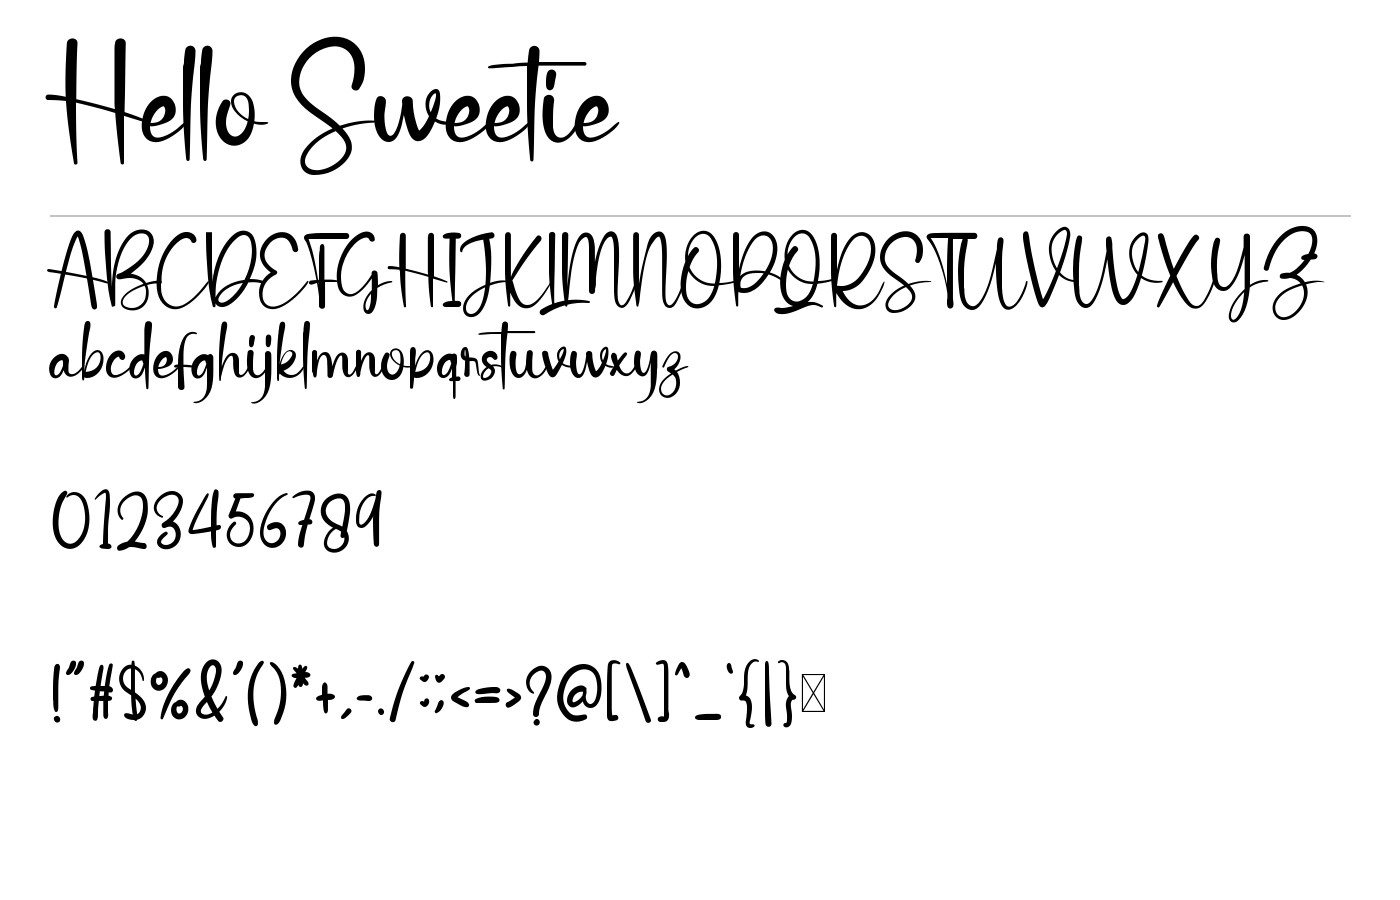 Hello Sweetie
ABCDEFGHIJKLMNOPQRSTUVWXYZ
abcdefghijklmnopqrstuvwxyz
0123456789
!"#$%&'()*+,-./:;<=>?@[\]^_`{|}